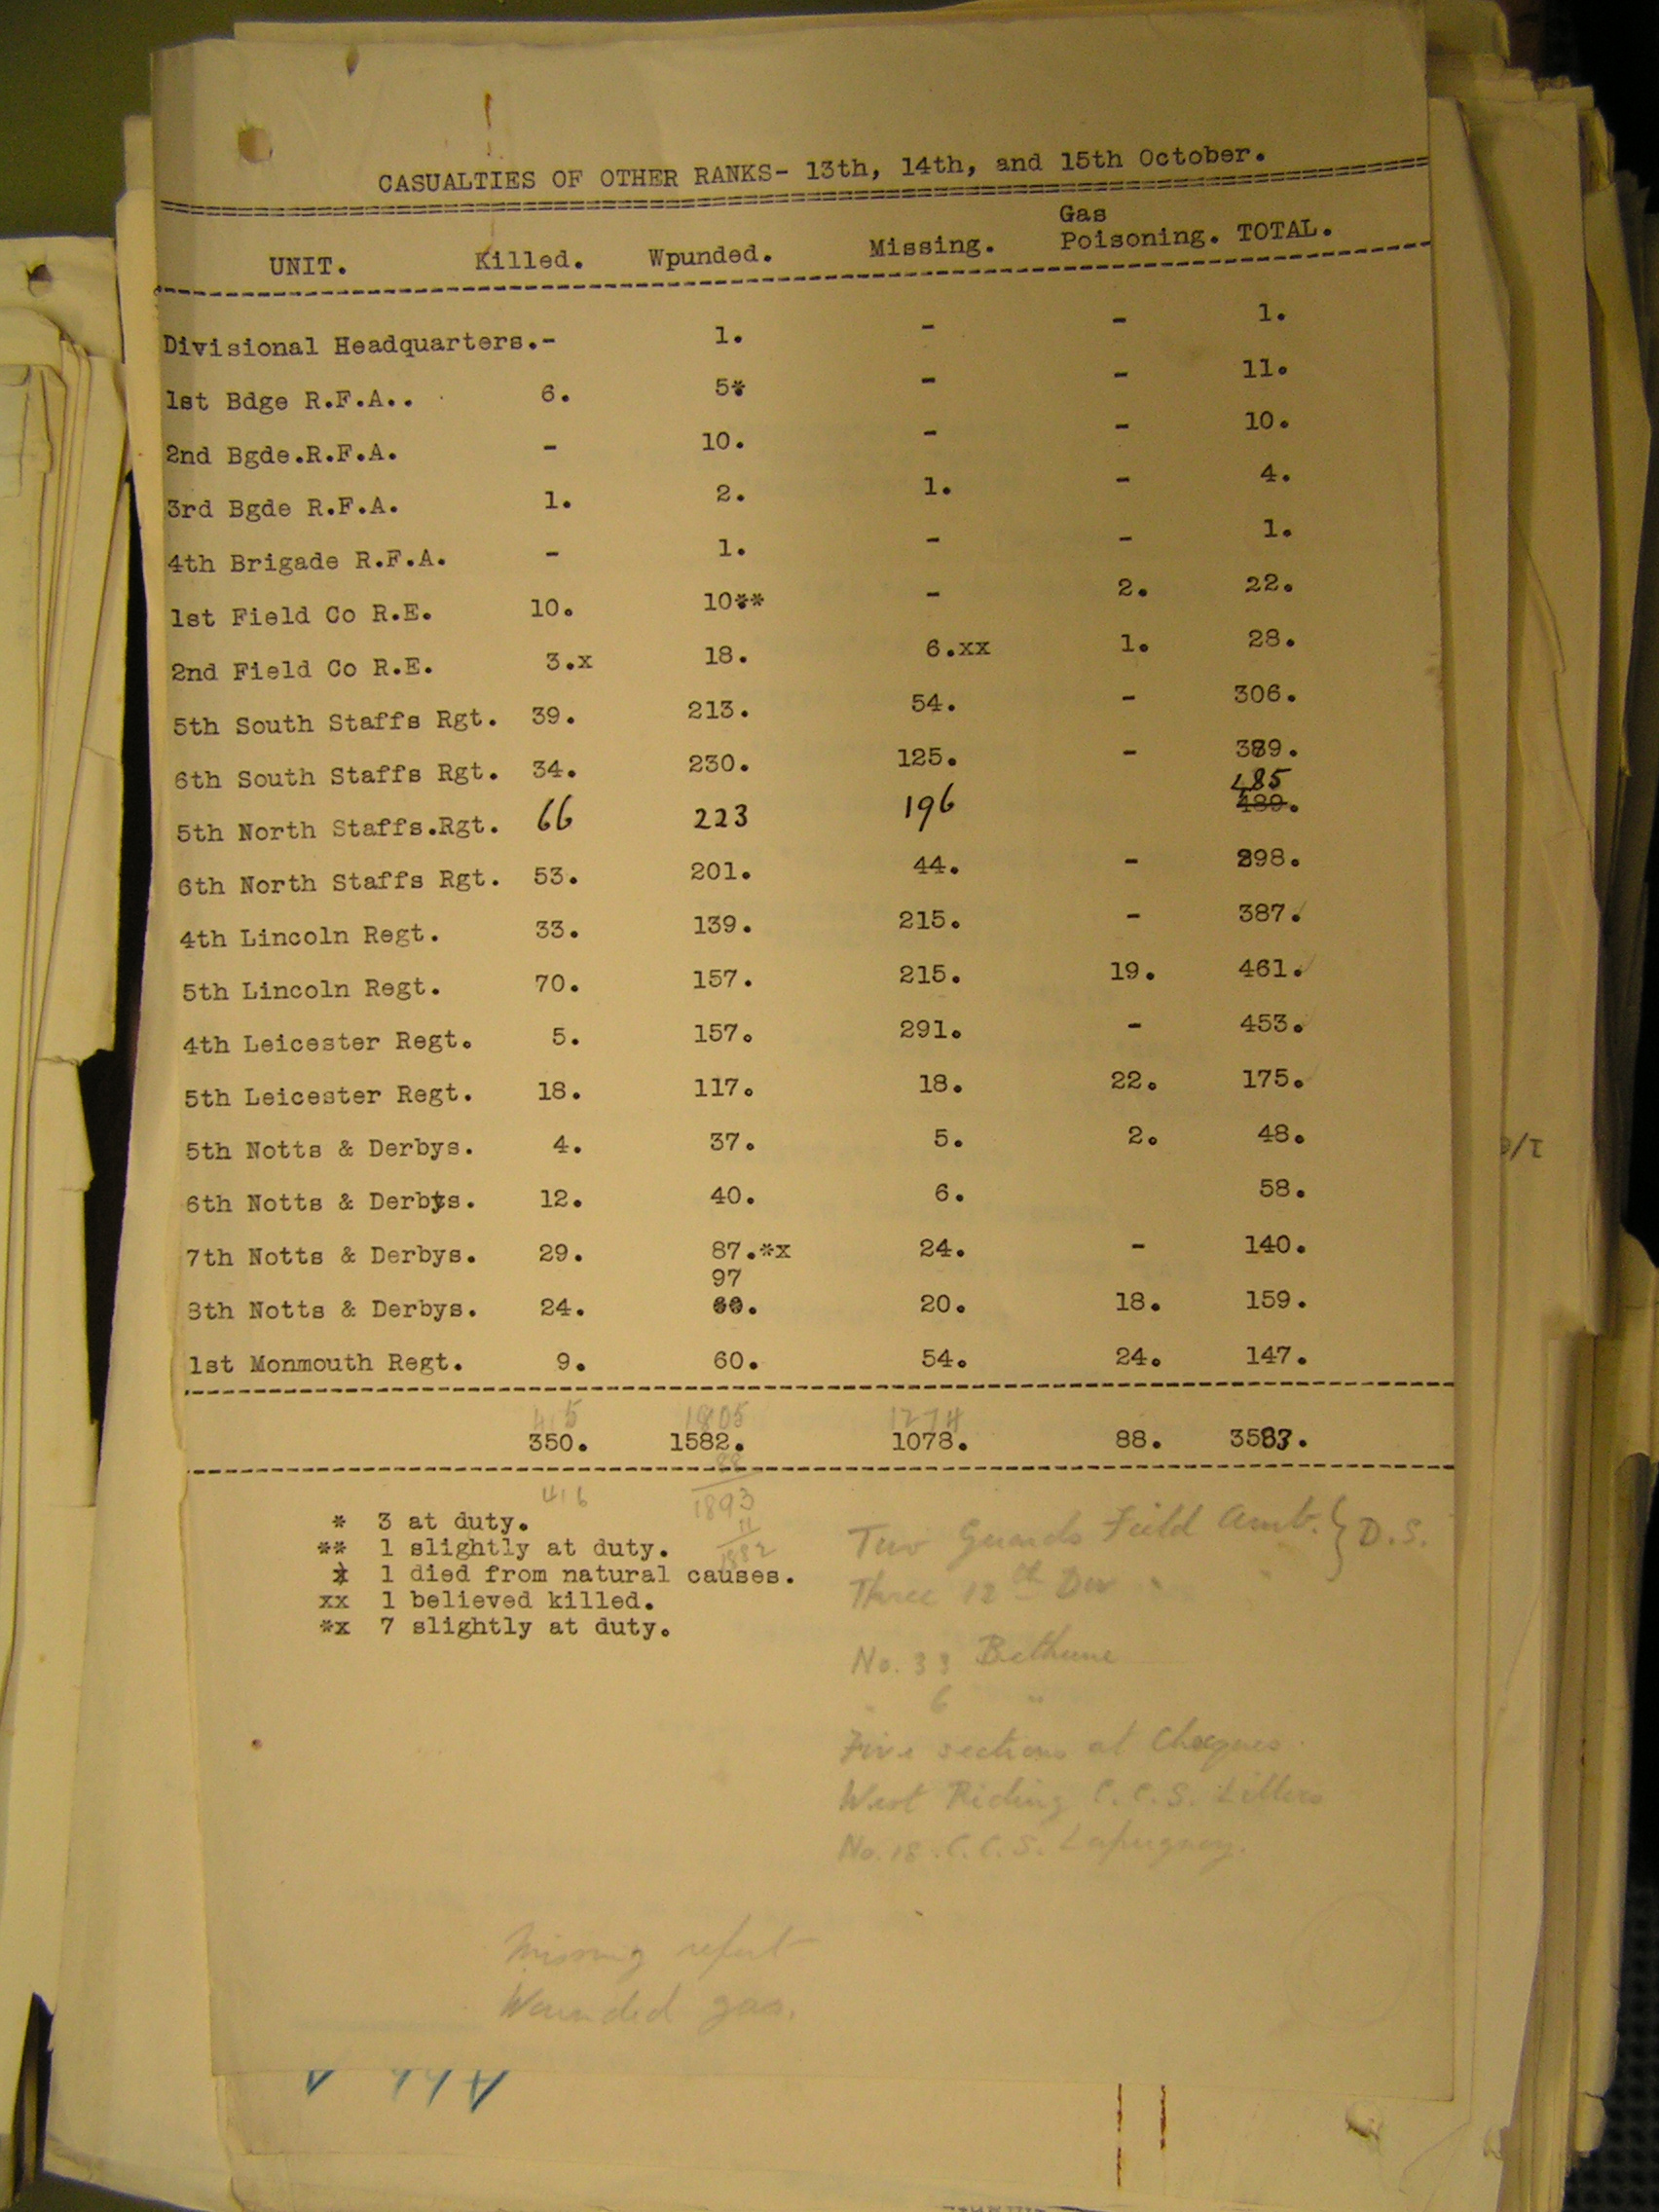 CASUALTIES OF OTHER RANKS- 13th, 14th, and 15th October.
UNIT. Killed. Wpunded. Missing. Gas Poisoning. TOTAL.
Divisional Headquarters.- 1. - - 1.
1st Bdge R.F.A.. 6. 5* - - 11.
2nd Bgde.R.F.A. - 10. - - 10.
3rd Bgde R.F.A. 1. 2. 1. - 4.
4th Brigade R.F.A. - 1. - - 1.
1st Field Co R.E. 10. 10** - 2. 22.
2nd Field Co R.E. 3.x 18. 6.xx 1. 28.
5th South Staffs Rgt. 39. 213. 54. - 306.
6th South Staffs Rgt. 34. 230. 125. - 389.
485
5th North Staffs.Rgt. 66 223 196 489.
6th North Staffs Rgt. 53. 201. 44. - 298.
4th Lincoln Regt. 33. 139. 215. - 387.
5th Lincoln Regt. 70. 157. 215. 19. 461.
4th Leicester Regt. 5. 157. 291. - 453.
5th Leicester Regt. 18. 117. 18. 22. 175.
5th Notts & Derbys. 4. 37. 5. 2. 48.
6th Notts & Derbys. 12. 40. 6. 58.
7th Notts & Derbys. 29. 87.*x 24. - 140.
97
8th Notts & Derbys. 24. 60. 20. 18. 159.
1st Monmouth Regt. 9. 60. 54. 24. 147.
415 1805 1274
350. 1582. 1078. 88. 3583.
88
416 1893
11
1882
* 3 at duty.
** 1 slightly at duty.
x 1 died from natural causes.
xx 1 believed killed.
*x 7 slightly at duty.
Two Guards Field Amb. } D.S.
Three 12th Div " "
No. 33 Bethune
" 6 "
Five sections at Choques
West Riding C.C.S. Lillers
No. 18. C.C.S. Lapugnoy.
Missing
Wounded gas.